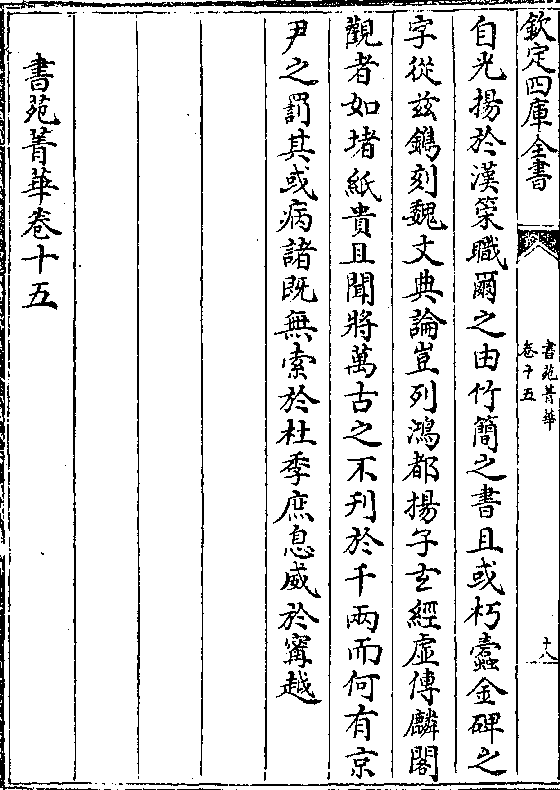 欽定四庫全書
書苑菁華
卷十五
十八
自光揚於漢策職爾之由竹簡之書且或朽蠹金碑之
字從兹鐫刻魏文典論豈列鴻都揚子𤣥經虛傳麟閣
觀者如堵紙貴且聞將萬古之不刋於千兩而何有京
尹之罰其或病諸既無索於杜季庶息威於甯越
書苑菁華卷十五